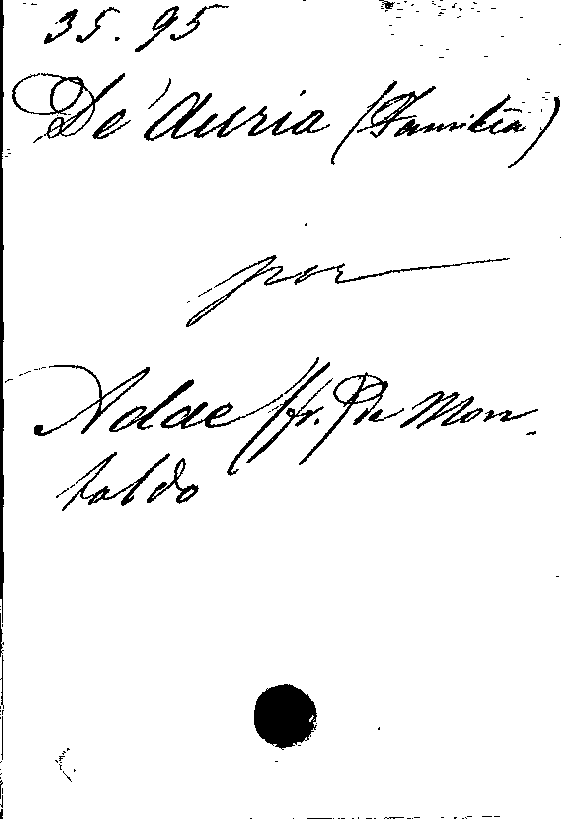 35.95
De'Auria (Familia)
por
Adae (fr. De Mon-
taldo